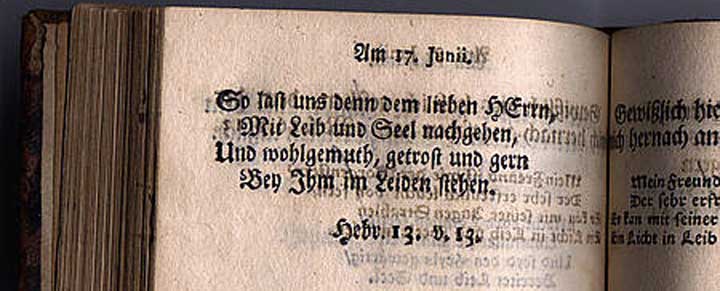 Am 17. Junii.
So last uns denn dem lieben HErrn,
Mit Leib und Seel nachgehen,
Und wohlgemuth, getrost und gern
Bey Ihm im Leiden stehen.
Hebr. 13. v. 13.
Gewißlich hie
hernach an
Mein Freund
Der sehr erst
Er kan mit seiner
Ein Licht in Leib